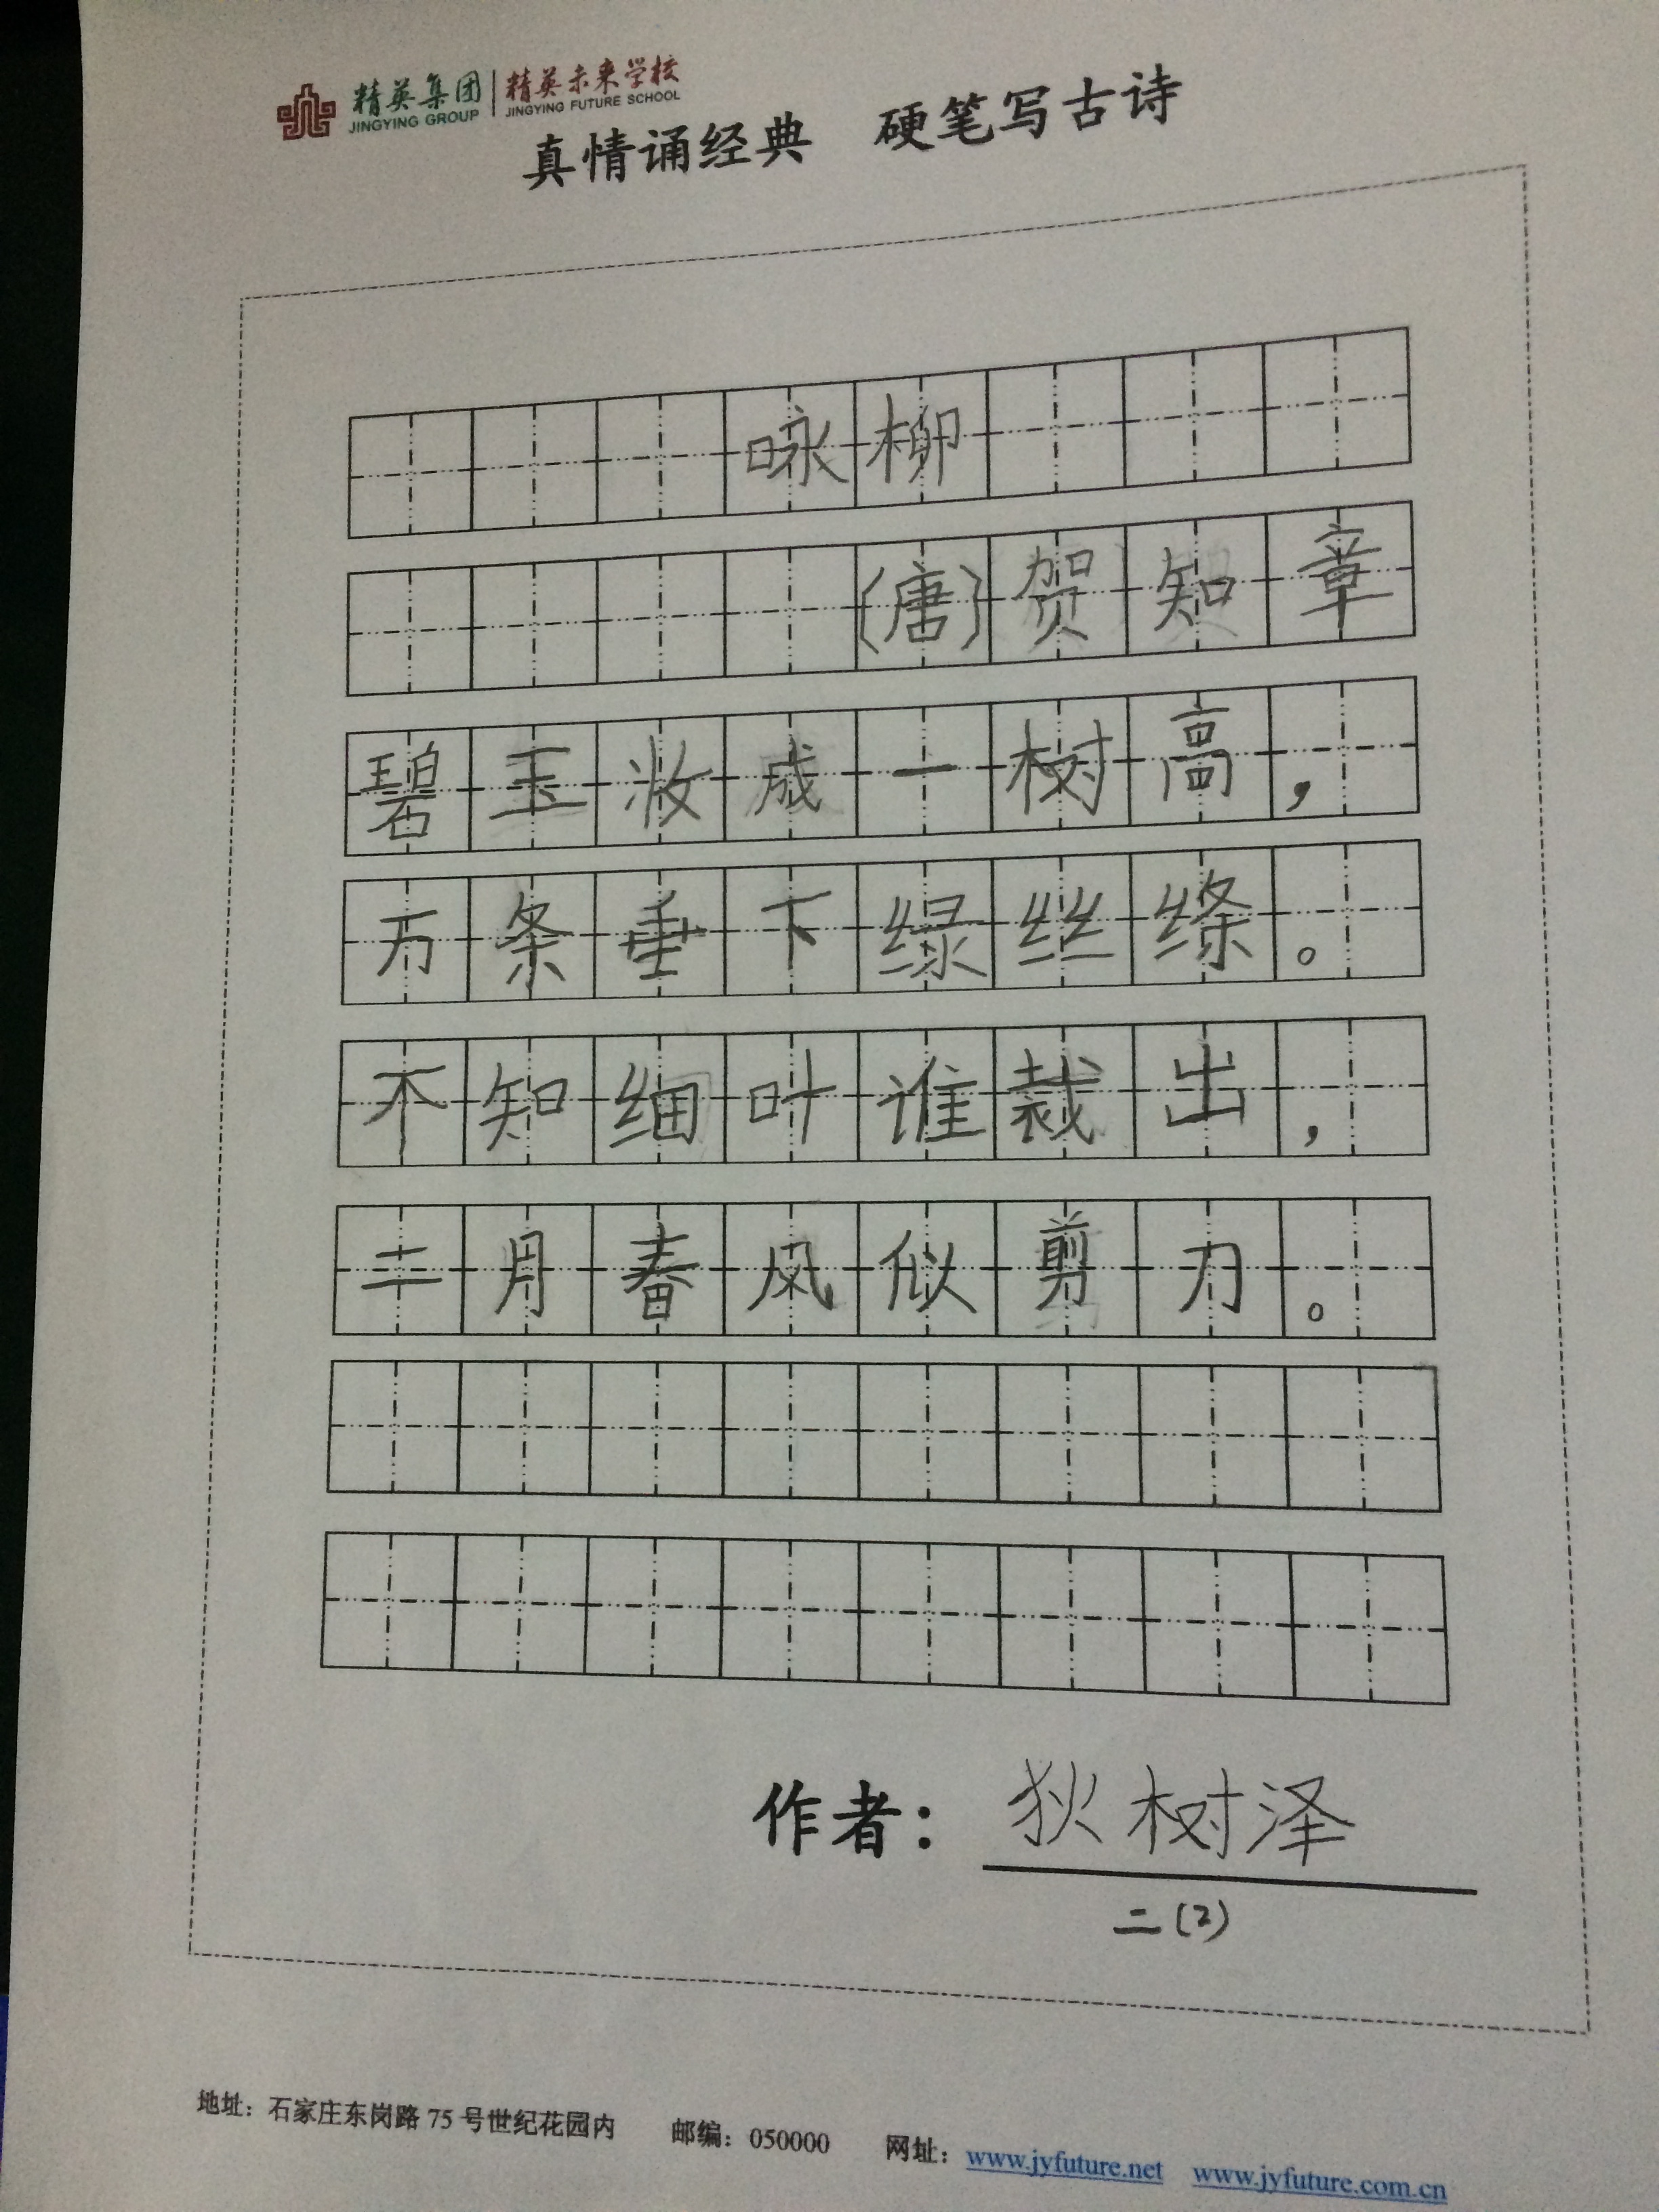 精英集团 精英未来学校
JINGYING GROUP JINGYING FUTURE SCHOOL
真情诵经典 硬笔写古诗
咏柳
(唐)贺知章
碧玉妆成一树高,
万条垂下绿丝绦。
不知细叶谁裁出,
二月春风似剪刀。
作者:狄树泽
二(2)
地址:石家庄东岗路 75 号世纪花园内 邮编:050000 网址:www.jyfuture.net www.jyfuture.com.cn